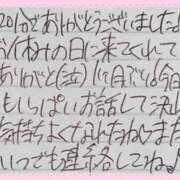 20分でありがとうございました
お休みの日に来てくれて
ありがと(泣)1ヶ月ぶりな今日
もいっぱいお話して沢
気持ちよくなれたねまた
いつでも連絡してね♪